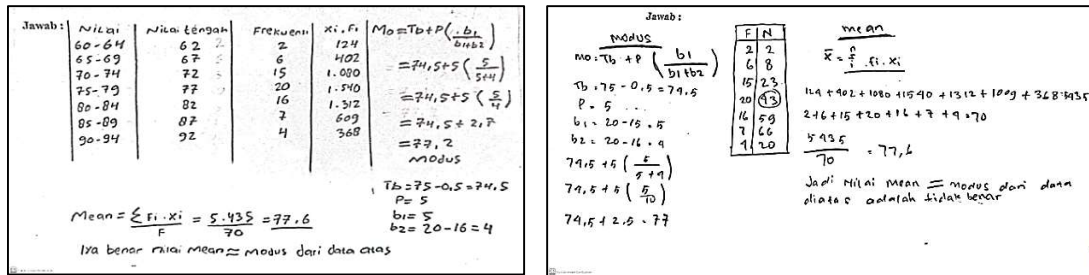 Jawab :
Nilai Nilai tengah Frekuensi xi . Fi
60-64 62 2 124
65-69 67 6 402
70-74 72 15 1.080
75-79 77 20 1.540
80-84 82 16 1.312
85-89 87 7 609
90-94 92 4 368
Mo = Tb + P (b1 / b1+b2)
= 74,5 + 5 (5 / 5+4)
= 74,5 + 5 (5 / 4)
= 74,5 + 2,7
= 77,2
modus
Tb = 75 - 0,5 = 74,5
P = 5
b1 = 5
b2 = 20 - 16 = 4
Mean = Σ Fi . xi / F = 5.435 / 70 = 77,6
Iya benar nilai mean = modus dari data atas
Jawab :
modus
Mo : Tb + P (b1 / b1+b2)
Tb : 75 - 0,5 = 74,5
P = 5
b1 = 20 - 15 = 5
b2 = 20 - 16 = 4
74,5 + 5 (5 / 5+4)
74,5 + 5 (5 / 10)
74,5 + 2,5 = 77
F N
2 2
6 8
15 23
20 43
16 59
7 66
4 20
mean
fi . xi
124 + 402 + 1080 + 1540 + 1312 + 609 + 368 = 5435
2 + 6 + 15 + 20 + 16 + 7 + 4 = 70
5435 / 70 = 77,6
Jadi Nilai Mean = modus dari data
diatas adalah tidak benar